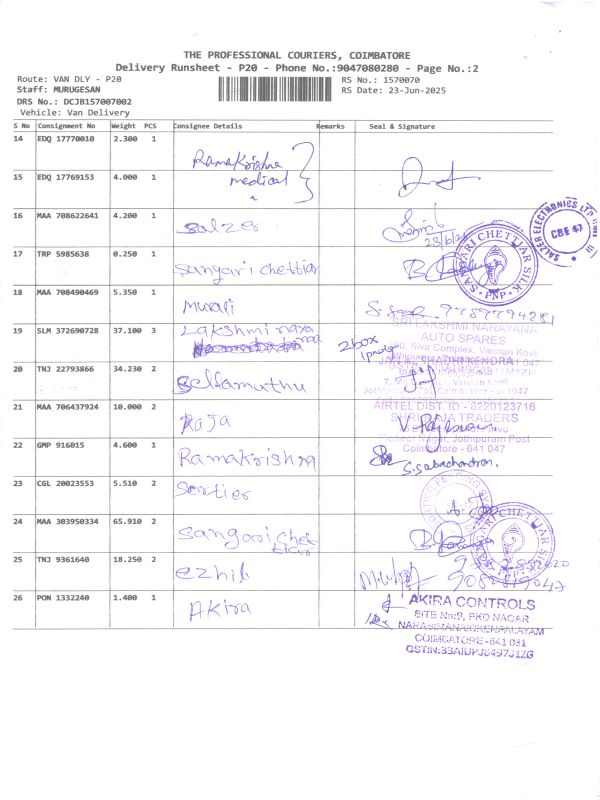 THE PROFESSIONAL COURIERS, COIMBATORE
Delivery Runsheet - P20 - Phone No.:9047080280 - Page No.:2
Route: VAN DLY - P20 RS No.: 1570070
Staff: MURUGESAN RS Date: 23-Jun-2025
DRS No.: DCJB157007002
Vehicle: Van Delivery
S No Consignment No Weight PCS Consignee Details Remarks Seal & Signature
14 EDQ 17770010 2.300 1 Ramakrishna
medical
15 EDQ 17769153 4.000 1
16 MAA 708622641 4.200 1 Salzer
SALZER ELECTRONICS LTD
CBE 47
17 TRP 5985638 0.250 1 Sangari chettiar
CHETTIAR SILK
PNP
18 MAA 708490469 5.350 1 Murali
19 SLM 372690728 37.100 3 Lakshmi naraya
2 box
SRI LAKSHMI NARAYANA
AUTO SPARES
Siva Complex, Vannan Kovil
20 TNJ 22793866 34.230 2 Selfamuthu
21 MAA 706437924 10.000 2 Raja
AIRTEL DIST. ID - 8220123716
TRADERS
Pioneer Nagar, Jothipuram Post
Coimbatore - 641 047
22 GMP 916015 4.600 1 Ramakrishna
23 CGL 20023553 5.510 2 Sortier
24 MAA 303950334 65.910 2 Sangari chet
tiar
25 TNJ 9361640 18.250 2 ezhil
26 PON 1332240 1.400 1 Akira
AKIRA CONTROLS
SITE No:9, PKD NAGAR
NARASIMANAICKENPALAYAM
COIMBATORE-641 031